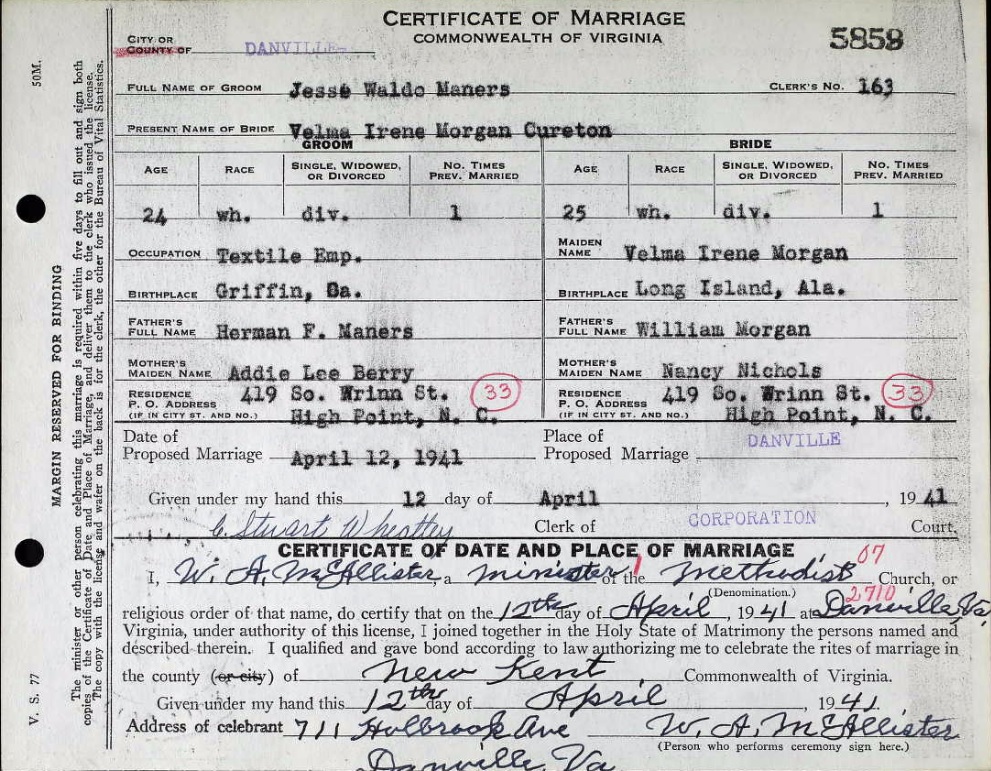 CERTIFICATE OF MARRIAGE
COMMONWEALTH OF VIRGINIA
CITY OR
COUNTY OF DANVILLE-
5858
FULL NAME OF GROOM Jesse Waldo Maners CLERK'S NO. 163
PRESENT NAME OF BRIDE Velma Irene Morgan Cureton
GROOM BRIDE
AGE RACE SINGLE, WIDOWED, OR DIVORCED NO. TIMES PREV. MARRIED AGE RACE SINGLE, WIDOWED, OR DIVORCED NO. TIMES PREV. MARRIED
24 wh. div. 1 25 wh. div. 1
OCCUPATION Textile Emp. MAIDEN NAME Velma Irene Morgan
BIRTHPLACE Griffin, Ga. BIRTHPLACE Long Island, Ala.
FATHER'S FULL NAME Herman F. Maners FATHER'S FULL NAME William Morgan
MOTHER'S MAIDEN NAME Addie Lee Berry MOTHER'S MAIDEN NAME Nancy Nichols
RESIDENCE 419 So. Wrinn St. 33 RESIDENCE 419 So. Wrinn St. 33
P. O. ADDRESS P. O. ADDRESS
(IF IN CITY ST. AND NO.) High Point, N. C. (IF IN CITY ST. AND NO.) High Point, N. C.
Date of Proposed Marriage April 12, 1941 Place of Proposed Marriage DANVILLE
Given under my hand this 12 day of April, 1941
C. Stuart Wheatley Clerk of CORPORATION Court.
CERTIFICATE OF DATE AND PLACE OF MARRIAGE
07
I, W. A. McAllister, a minister of the 1 Methodist Church, or
(Denomination.) 2710
religious order of that name, do certify that on the 12th day of April, 1941 at Danville, Va,
Virginia, under authority of this license, I joined together in the Holy State of Matrimony the persons named and
described therein. I qualified and gave bond according to law authorizing me to celebrate the rites of marriage in
the county (or city) of New Kent Commonwealth of Virginia.
Given under my hand this 12th day of April, 1941.
Address of celebrant 711 Holbrook Ave W. A. McAllister
(Person who performs ceremony sign here.)
Danville, Va
V. S. 77 MARGIN RESERVED FOR BINDING 50M.
The minister or other person celebrating this marriage is required within five days to fill out and sign both
copies of the Certificate of Date and Place of Marriage, and deliver them to the clerk who issued the license.
The copy with the license and wafer on the back is for the clerk, the other for the Bureau of Vital Statistics.